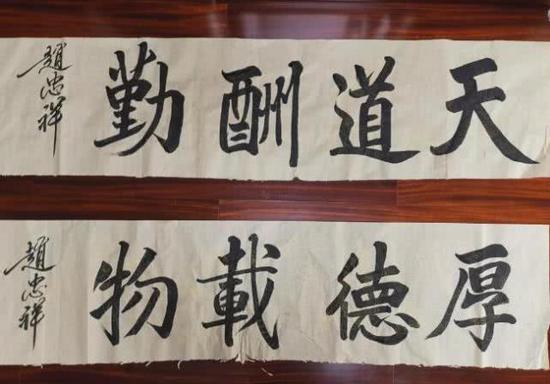 天道酬勤
趙忠祥
厚德載物
趙忠祥